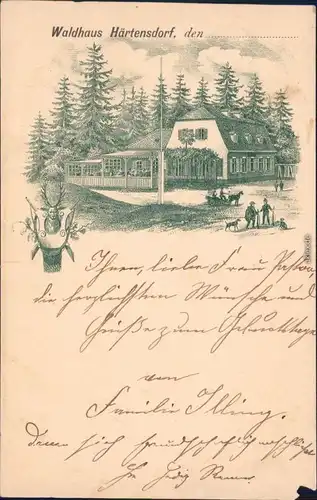 Waldhaus Härtensdorf, den
Ihnen, liebe Frau Pastor
die herzlichsten Wünsche und
Grüße zum Geburtstage
von
Familie Illing.
Dem sich